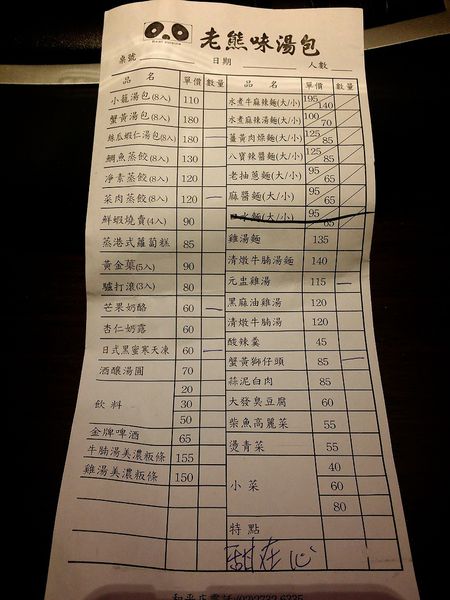 老熊味湯包
桌號 日期 人數
品名 單價 數量 品名 單價 數量
小籠湯包(8入) 110 水煮牛麻辣麵(大/小) 195/140
蟹黃湯包(8入) 180 水煮麻辣湯麵(大/小) 100/70
絲瓜蝦仁湯包(8入) 180 一 薑黃肉燥麵(大/小) 125/85
鯛魚蒸餃(8入) 130 八寶辣醬麵(大/小) 125/85
淨素蒸餃(8入) 120 老抽蔥麵(大/小) 95/65
菜肉蒸餃(8入) 120 一 麻醬麵(大/小) 95/65
鮮蝦燒賣(4入) 90 水麵(大/小) 95/65
蒸港式蘿蔔糕 85 雞湯麵 135
黃金菓(5入) 90 清燉牛腩湯麵 140
驢打滾(3入) 80 元盅雞湯 115 一
芒果奶酪 60 一 黑麻油雞湯 120
杏仁奶露 60 清燉牛腩湯 120
日式黑蜜寒天凍 60 一 酸辣羹 45
酒釀湯圓 70 蟹黃獅仔頭 85 一
飲料 20 蒜泥白肉 85
30 大發臭豆腐 60
50 柴魚高麗菜 55
金牌啤酒 65 燙青菜 55
牛腩湯美濃粄條 155 小菜 40
雞湯美濃粄條 150 60
80
特點
甜在心